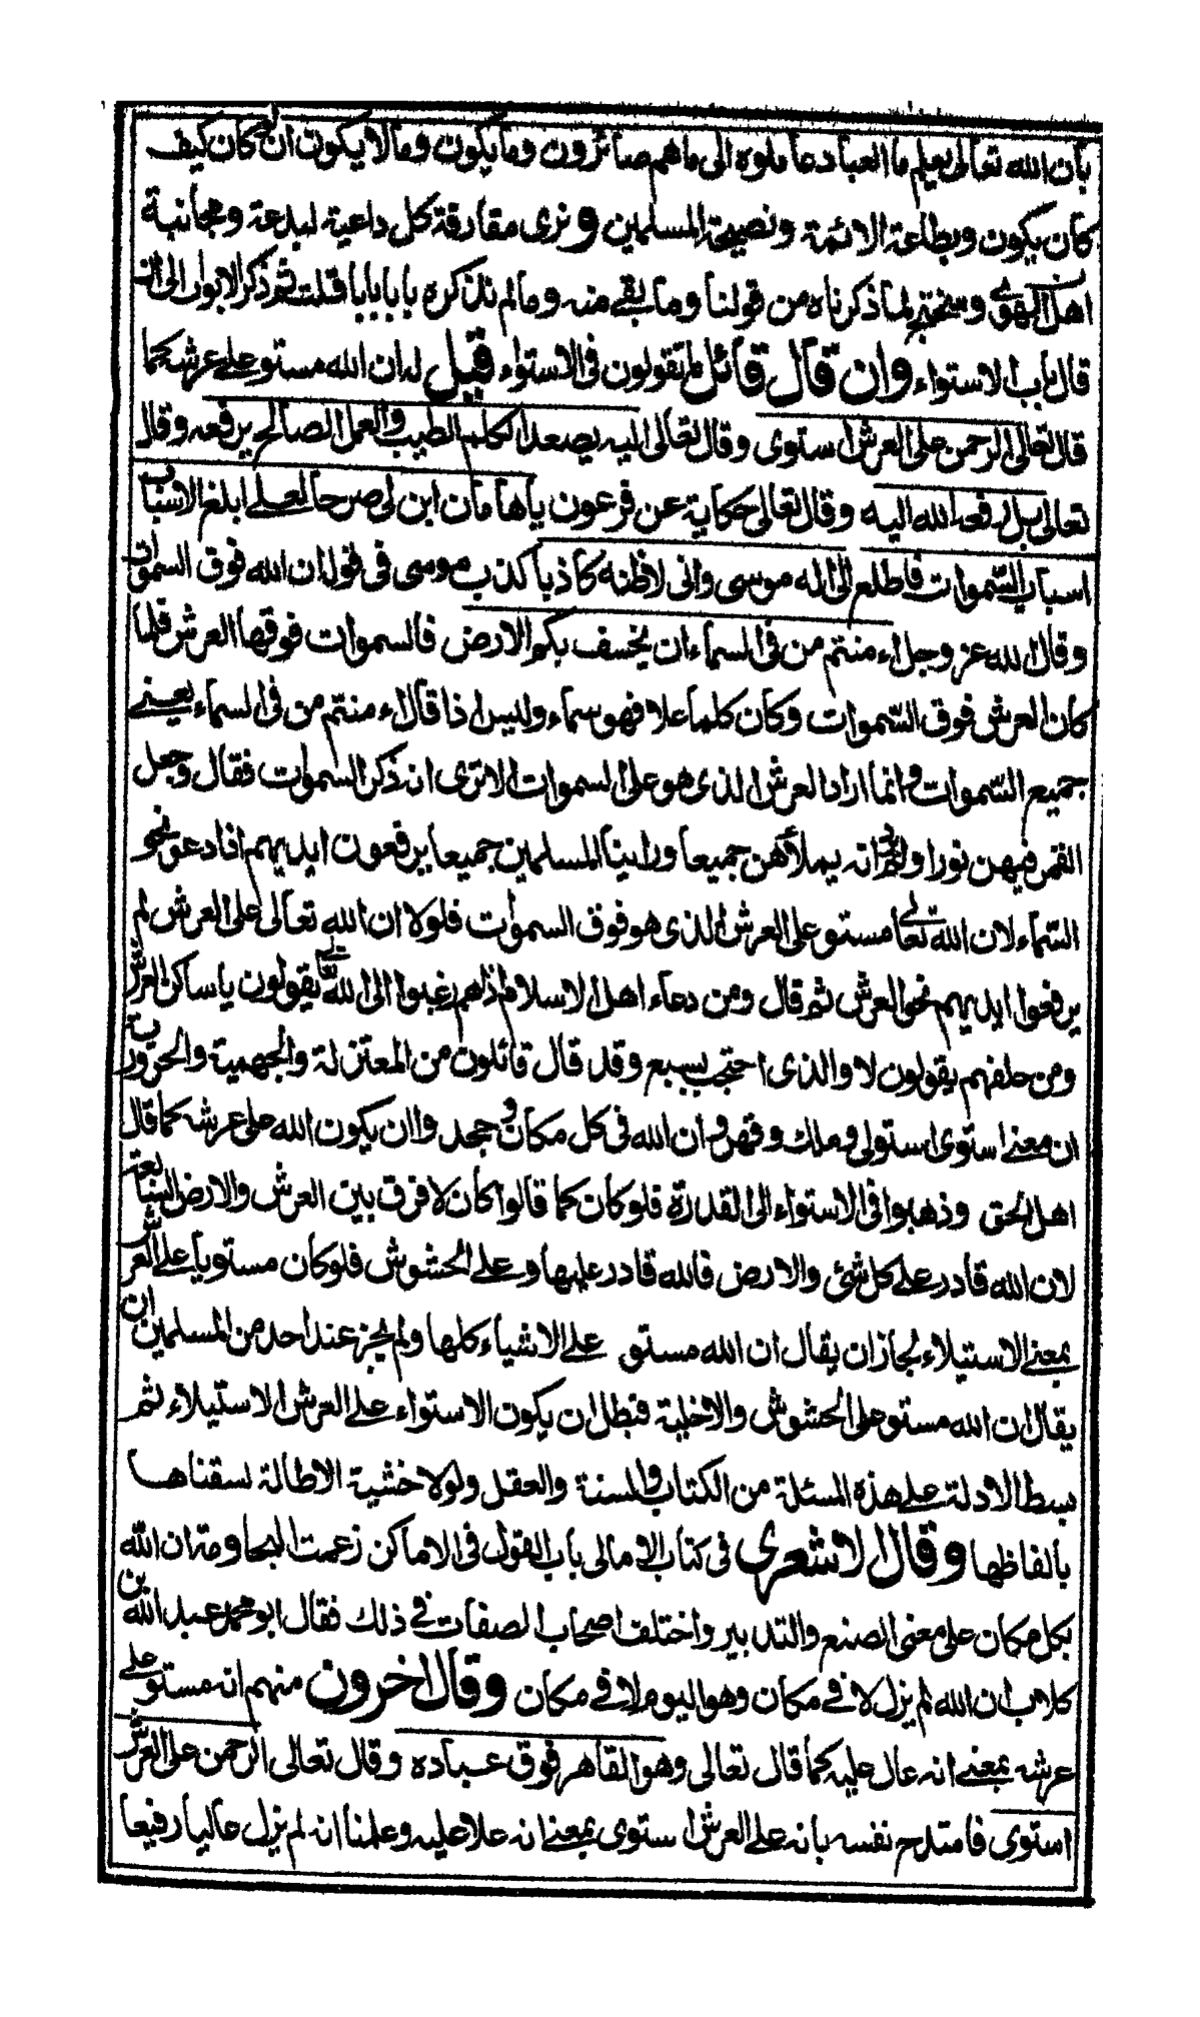 بأن الله تعالى يعلم ما العباد عاملوه الى ما هم صائرون وما يكون وما لا يكون ان لو كان كيف
كان يكون وبطاعة الائمة ونصيحة المسلمين ونرى مفارقة كل داعية لبدعة ومجانبة
اهل الهوى وسنحتج لما ذكرناه من قولنا وما بقى منه وما لم نذكره بابا بابا قلت ثم ذكر الابواب الى ان
قال باب الاستواء وان قال قائل ما تقولون فى الاستواء قيل له ان الله مستو على عرشه كما
قال تعالى الرحمن على العرش استوى وقال تعالى اليه يصعد الكلم الطيب والعمل الصالح يرفعه وقال
تعالى بل رفعه الله اليه وقال تعالى حكاية عن فرعون يا هامان ابن لى صرحا لعلى ابلغ الاسباب
اسباب السموات فاطلع الى اله موسى وانى لاظنه كاذبا كذب موسى فى قوله ان الله فوق السموات
وقال الله عز وجل ءامنتم من فى السماء ان يخسف بكم الارض فالسموات فوقها العرش فلما
كان العرش فوق السموات وكان كلما علا فهو سماء وليس اذا قال ءامنتم من فى السماء يعنى
جميع السموات وانما اراد العرش الذى هو على السموات الا ترى انه ذكر السموات فقال وجعل
القمر فيهن نورا ولم يرد انه يملأهن جميعا وراينا المسلمين جميعا يرفعون ايديهم اذا دعوا نحو
السماء لان الله تعالى مستو على العرش الذى هو فوق السموات فلولا ان الله تعالى على العرش لم
يرفعوا ايديهم نحو العرش ثم قال ومن دعاء اهل الاسلام اذا هم رغبوا الى الله تعالى يقولون يا ساكن العرش
ومن حلفهم يقولون لا والذى احتجب بسبع وقد قال قائلون من المعتزلة والجهمية والحرورية
ان معنى استوى استولى وملك وقهر وان الله فى كل مكان وجحدوا ان يكون الله على عرشه كما قال
اهل الحق وذهبوا فى الاستواء الى القدرة فلو كان كما قالوا كان لا فرق بين العرش والارض السابعة
لان الله قادر على كل شئ والارض فالله قادر عليها وعلى الحشوش فلو كان مستويا على العرش
بمعنى الاستيلاء لجاز ان يقال ان الله مستو على الاشياء كلها ولم يجز عند احد من المسلمين ان
يقال ان الله مستو على الحشوش والاخلية فبطل ان يكون الاستواء على العرش الاستيلاء ثم
بسط الادلة على هذه المسئلة من الكتاب والسنة والعقل ولولا خشية الاطالة لسقناها
بالفاظها وقال الاشعرى فى كتاب الامالى باب القول فى الاماكن زعمت النجاومة ان الله
بكل مكان على معنى الصنع والتدبير واختلف اصحاب الصفات فى ذلك فقال ابو محمد عبد الله بن
كلاب ان الله لم يزل لا فى مكان وهو اليوم لا فى مكان وقال اخرون منهم انه مستو على
عرشه بمعنى انه عال عليه كما قال تعالى وهو القاهر فوق عباده وقال تعالى الرحمن على العرش
استوى فامتدح نفسه بانه على العرش استوى بمعنى انه علا عليه وعلمنا انه لم يزل عاليا رفيعا